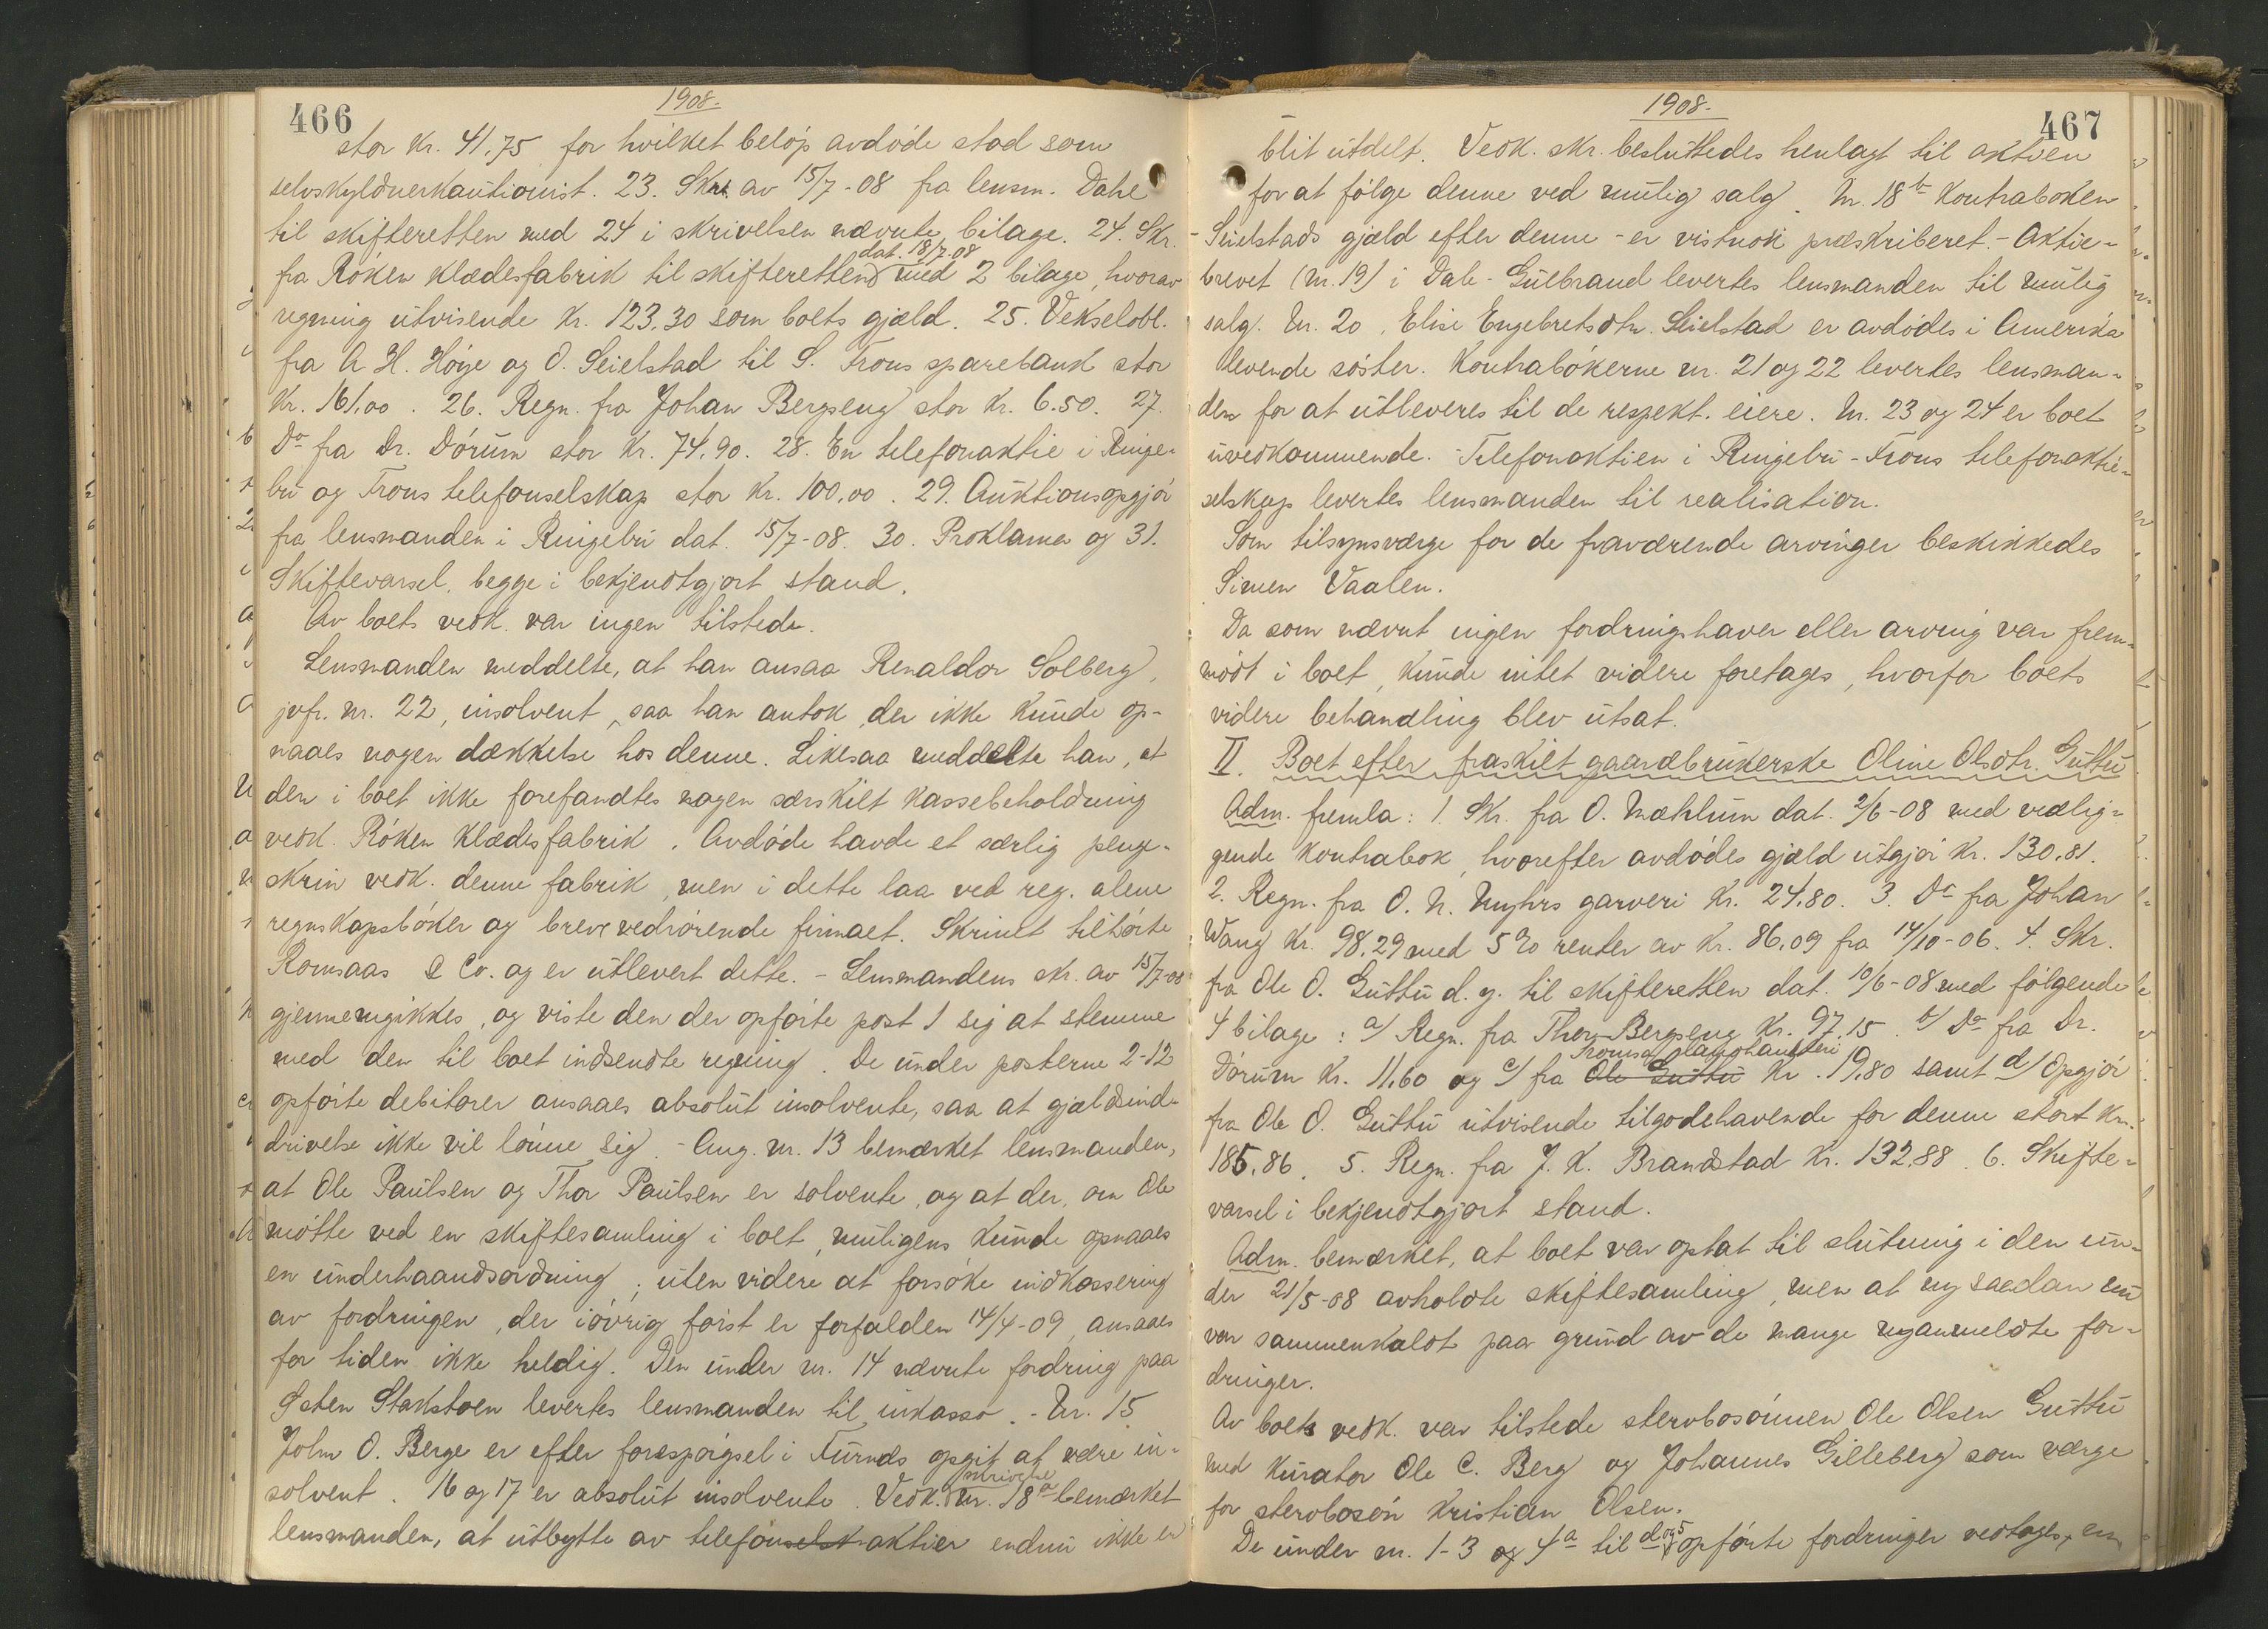 466
1908.
stor kr. 41,75 for hvilket beløp avdøde stod som
selvskyldnerkautionist. 23. Skr. av 15/7-08 fra lensm. Dahl
til skifteretten med 24 i skrivelsen nævnte bilage. 24. Skr.
dat. 18/7-08
fra Röken klædesfabrik til skifteretten med 2 bilage, hvorav
regning utvisende kr. 123,30 som boets gjæld. 25. Vekselobl.
fra A. H. Höye og O. Seielstad til S. Frons sparebank stor
kr. 161,00. 26. Regn. fra Johan Bergseng stor kr. 6.50. 27.
Do fra Dr. Dórum stor kr. 74,90. 28. En telefonaktie i Ringe-
bu og Frons telefonselskap stor kr. 100,00. 29. Auktionsopgjör
fra lensmanden i Ringebu dat. 15/7-08. 30. Proklama og 31.
Skiftevarsel, begge i bekjendtgjort stand.
Av boets vedk. var ingen tilstede.
Lensmanden meddelte, at han ansaa Renaldor Solberg,
jvfr. nr. 22, insolvent, saa han antok, der ikke kunde op-
naaes nogen dækkelse hos denne. Likesaa meddelte han, at
der i boet ikke forefandtes nogen særskilt kassebeholdning
vedk. Röken klædesfabrik. Avdöde havde et særlig penge-
skrin vedk. denne fabrik, men i dette laa ved reg. alene
regnskapsböker og breve vedrörende firmaet. Skrinet tilhörte
Romsaas & Co. og er utlevert dette. - Lensmandens skr. av 15/7-08
gjennemgikkes, og viste den der opförte post 1 sig at stemme
med den til boet indsendte regning. De under posterne 2-12
opförte debitorer ansaaes absolut insolvente, saa at gjældsind-
drivelse ikke vil lönne sig. - Ang. nr. 13 bemærket lensmanden,
at Ole Paulsen og Thor Paulsen er solvente, og at der, om Ole
mötte ved en skiftesamling i boet, muligens kunde opnaaes
en underhaandsordning; uten videre at forsöke indkassering
av fordringen, der iövrig först er forfalden 14/4-09, ansaaes
for tiden ikke heldig. Den under nr. 14 nævnte fordring paa
Østen Stakstoen levertes lensmanden til inkasso. - Nr. 15
John O. Berge er efter forespörgsel i Furnes opgit at være in-
solvent. 16 og 17 er absolut insolvente. Vedk. skrivelse nr. 18a bemærket
lensmanden, at utbytte av telefonselsk aktier endnu ikke er
467
1908.
blit utdelt. Vedk. skr. besluttedes henlagt til aktien
for at fölge denne ved mulig salg. Nr. 18b Kontraboken
- Seielstads gjæld efter denne - er vistnok præskriberet. - Aktie-
brevet (nr. 19) i Dale-Gulbrand levertes lensmanden til mulig
salg. Nr. 20, Elise Engebretsdtr. Seielstad er avdödes i Amerika
levende söster. Kontrabökerne nr. 21 og 22 levertes lensman-
den for at utleveres til de respekt. eiere. Nr. 23 og 24 er boet
uvedkommende. Telefonaktien i Ringebu-Frons telefonaktie-
selskap levertes lensmanden til realisation.
Som tilsynsværge for de fraværende arvinger beskikkedes
Simen Vaalen.
Da som nævnt ingen fordringshaver eller arving var frem-
mödt i boet, kunde intet videre foretages, hvorfor boets
videre behandling blev utsat.
II. Boet efter fraskilt gaardbrukerske Oline Olsdtr. Guttu
Adm. fremla: 1. Skr. fra O. Mæhlum dat. 2/6-08 med vedlig-
gende kontrabok, hvorefter avdödes gjæld utgjör kr. 130.81.
2. Regn. fra O. N. Myhrs garveri kr. 24,80. 3. Do fra Johan
Wang kr. 98.29 med 5 % renter av kr. 86,09 fra 14/10-06. 4. Skr.
fra Ole O. Guttu d. y. til skifteretten dat. 10/6-08 med fölgende
4 bilage: a/ Regn. fra Thor Bergseng kr. 97.15. b/ Do fra Dr.
Dórum kr. 11,60 og c/ fra Ole Guttu kr. 19,80 samt d/ Opgjör
fra Ole O. Guttu utvisende tilgodehavende for denne stort kr.
185,86. 5. Regn. fra J. K. Brandstad kr. 132,88. 6. Skifte-
varsel i bekjendtgjort stand.
Adm. bemærket, at boet var optat til slutning i den un-
der 21/5-08 avholdte skiftesamling, men at ny saadan nu
var sammenkaldt paa grund av de mange nyanmeldte for-
dringer.
Av boets vedk. var tilstede stervbosönnen Ole Olsen Guttu
med kurator Ole C. Berg og Johannes Gilleberg som værge
for stervbosön Kristian Olsen.
De under nr. 1-3 og 4a til d og 5 opförte fordringer vedtages, en